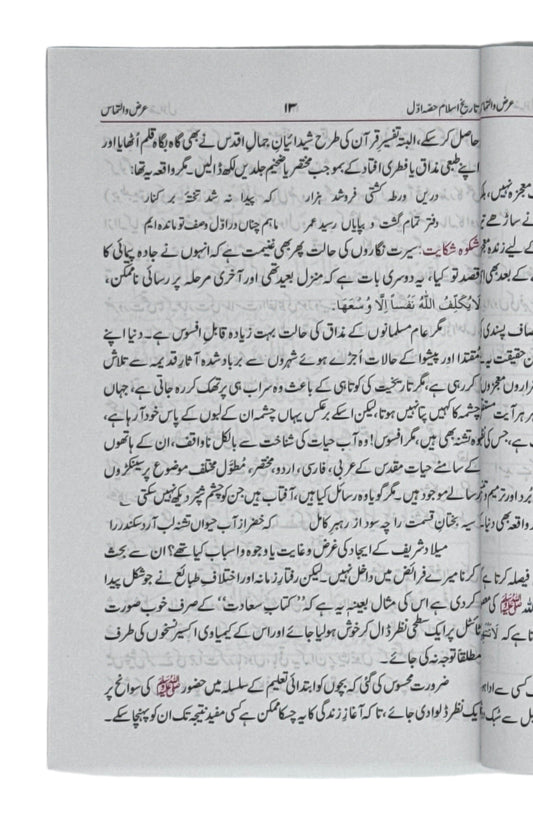 تاریخ اسلام حصہ اوّل ۱۳ عرض والتماس
حاصل کرسکے، البتہ تفسیر قرآن کی طرح شیدائیانِ جمالِ اقدس نے بھی گاہ بگاہ قلم اُٹھایا اور
اپنے طبعی مذاق یا فطری افتاد کے بموجب مختصر یا ضخیم جلدیں لکھ ڈالیں۔ مگر واقعہ یہ تھا:
دریں ورطہ کشتی فروشد ہزار کہ پیدا نہ شد تختۂ بر کنار
دفتر تمام گشت و بپایاں رسید عمر ماہم چناں در اوّل وصف تو ماندہ ایم
شکوہ شکایت: سیرت نگاروں کی حالت پھر بھی غنیمت ہے کہ انہوں نے جادہ پیمائی کا
قصد تو کیا، یہ دوسری بات ہے کہ منزل بعید تھی اور آخری مرحلہ پر رسائی ناممکن،
لَا يُكَلِّفُ اللّٰهُ نَفْسًا إِلَّا وُسْعَهَا۔
مگر عام مسلمانوں کے مذاق کی حالت بہت زیادہ قابلِ افسوس ہے۔ دنیا اپنے
مقتدا اور پیشوا کے حالات اُجڑے ہوئے شہروں سے برباد شدہ آثارِ قدیمہ سے تلاش
کر رہی ہے، مگر تاریخیت کی کوتاہی کے باعث وہ سراب ہی پر تھک کر رہ جاتی ہے، جہاں
چشمہ کا کہیں پتا نہیں ہوتا، لیکن اسکے برعکس یہاں چشمہ ان کے لبوں کے پاس خود آرہا ہے،
وہ تشنہ بھی ہیں، مگر افسوس! وہ آب حیات کی شناخت سے بالکل ناواقف، ان کے ہاتھوں
کے سامنے حیات مقدس کے عربی، فارسی، اردو، مختصر، مُطوّل مختلف موضوع پر سینکڑوں
رسالے موجود ہیں۔ مگر گویا وہ رسائل کیا ہیں، آفتاب ہیں جن کو چشمِ شپّر دیکھ نہیں سکتی
سیہ بختانِ قسمت را چہ سود از رہبرِ کامل کہ خضر از آب حیواں تشنہ لب آرد سکندر را
میلاد شریف کے ایجاد کی غرض و غایت یا وجوہ و اسباب کیا تھے؟ ان سے بحث
کرنا میرے فرائض میں داخل نہیں۔ لیکن رفتارِ زمانہ اور اختلافِ طبائع نے جو شکل پیدا
کردی ہے اس کی مثال بعینہٖ یہ ہے کہ ’’کتاب سعادت‘‘ کے صرف خوب صورت
ٹائٹل پر ایک سطحی نظر ڈال کر خوش ہولیا جائے اور اس کے کیمیاوی اکسیر نسخوں کی طرف
مطلقاً توجہ نہ کی جائے۔
ضرورت محسوس کی گئی کہ بچوں کو ابتدائی تعلیم کے سلسلہ میں حضور ﷺ کی سوانح پر
ایک نظر ڈلوا دی جائے، تاکہ آغازِ زندگی کا یہ چسکا ممکن ہے کسی مفید نتیجہ تک ان کو پہنچا سکے۔